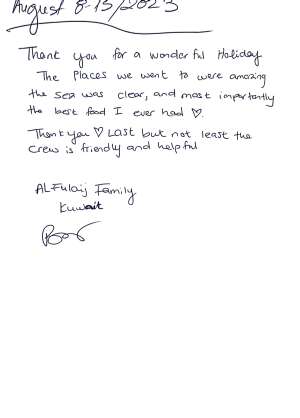 August 8-15/2023
Thank you for a wonderful Holiday
The Places we went to were amazing
the sea was clear, and most importantly
the best food I ever had ♡.
Thank you ♡ Last but not least the
crew is friendly and helpful
ALFulaij Family
Kuwait